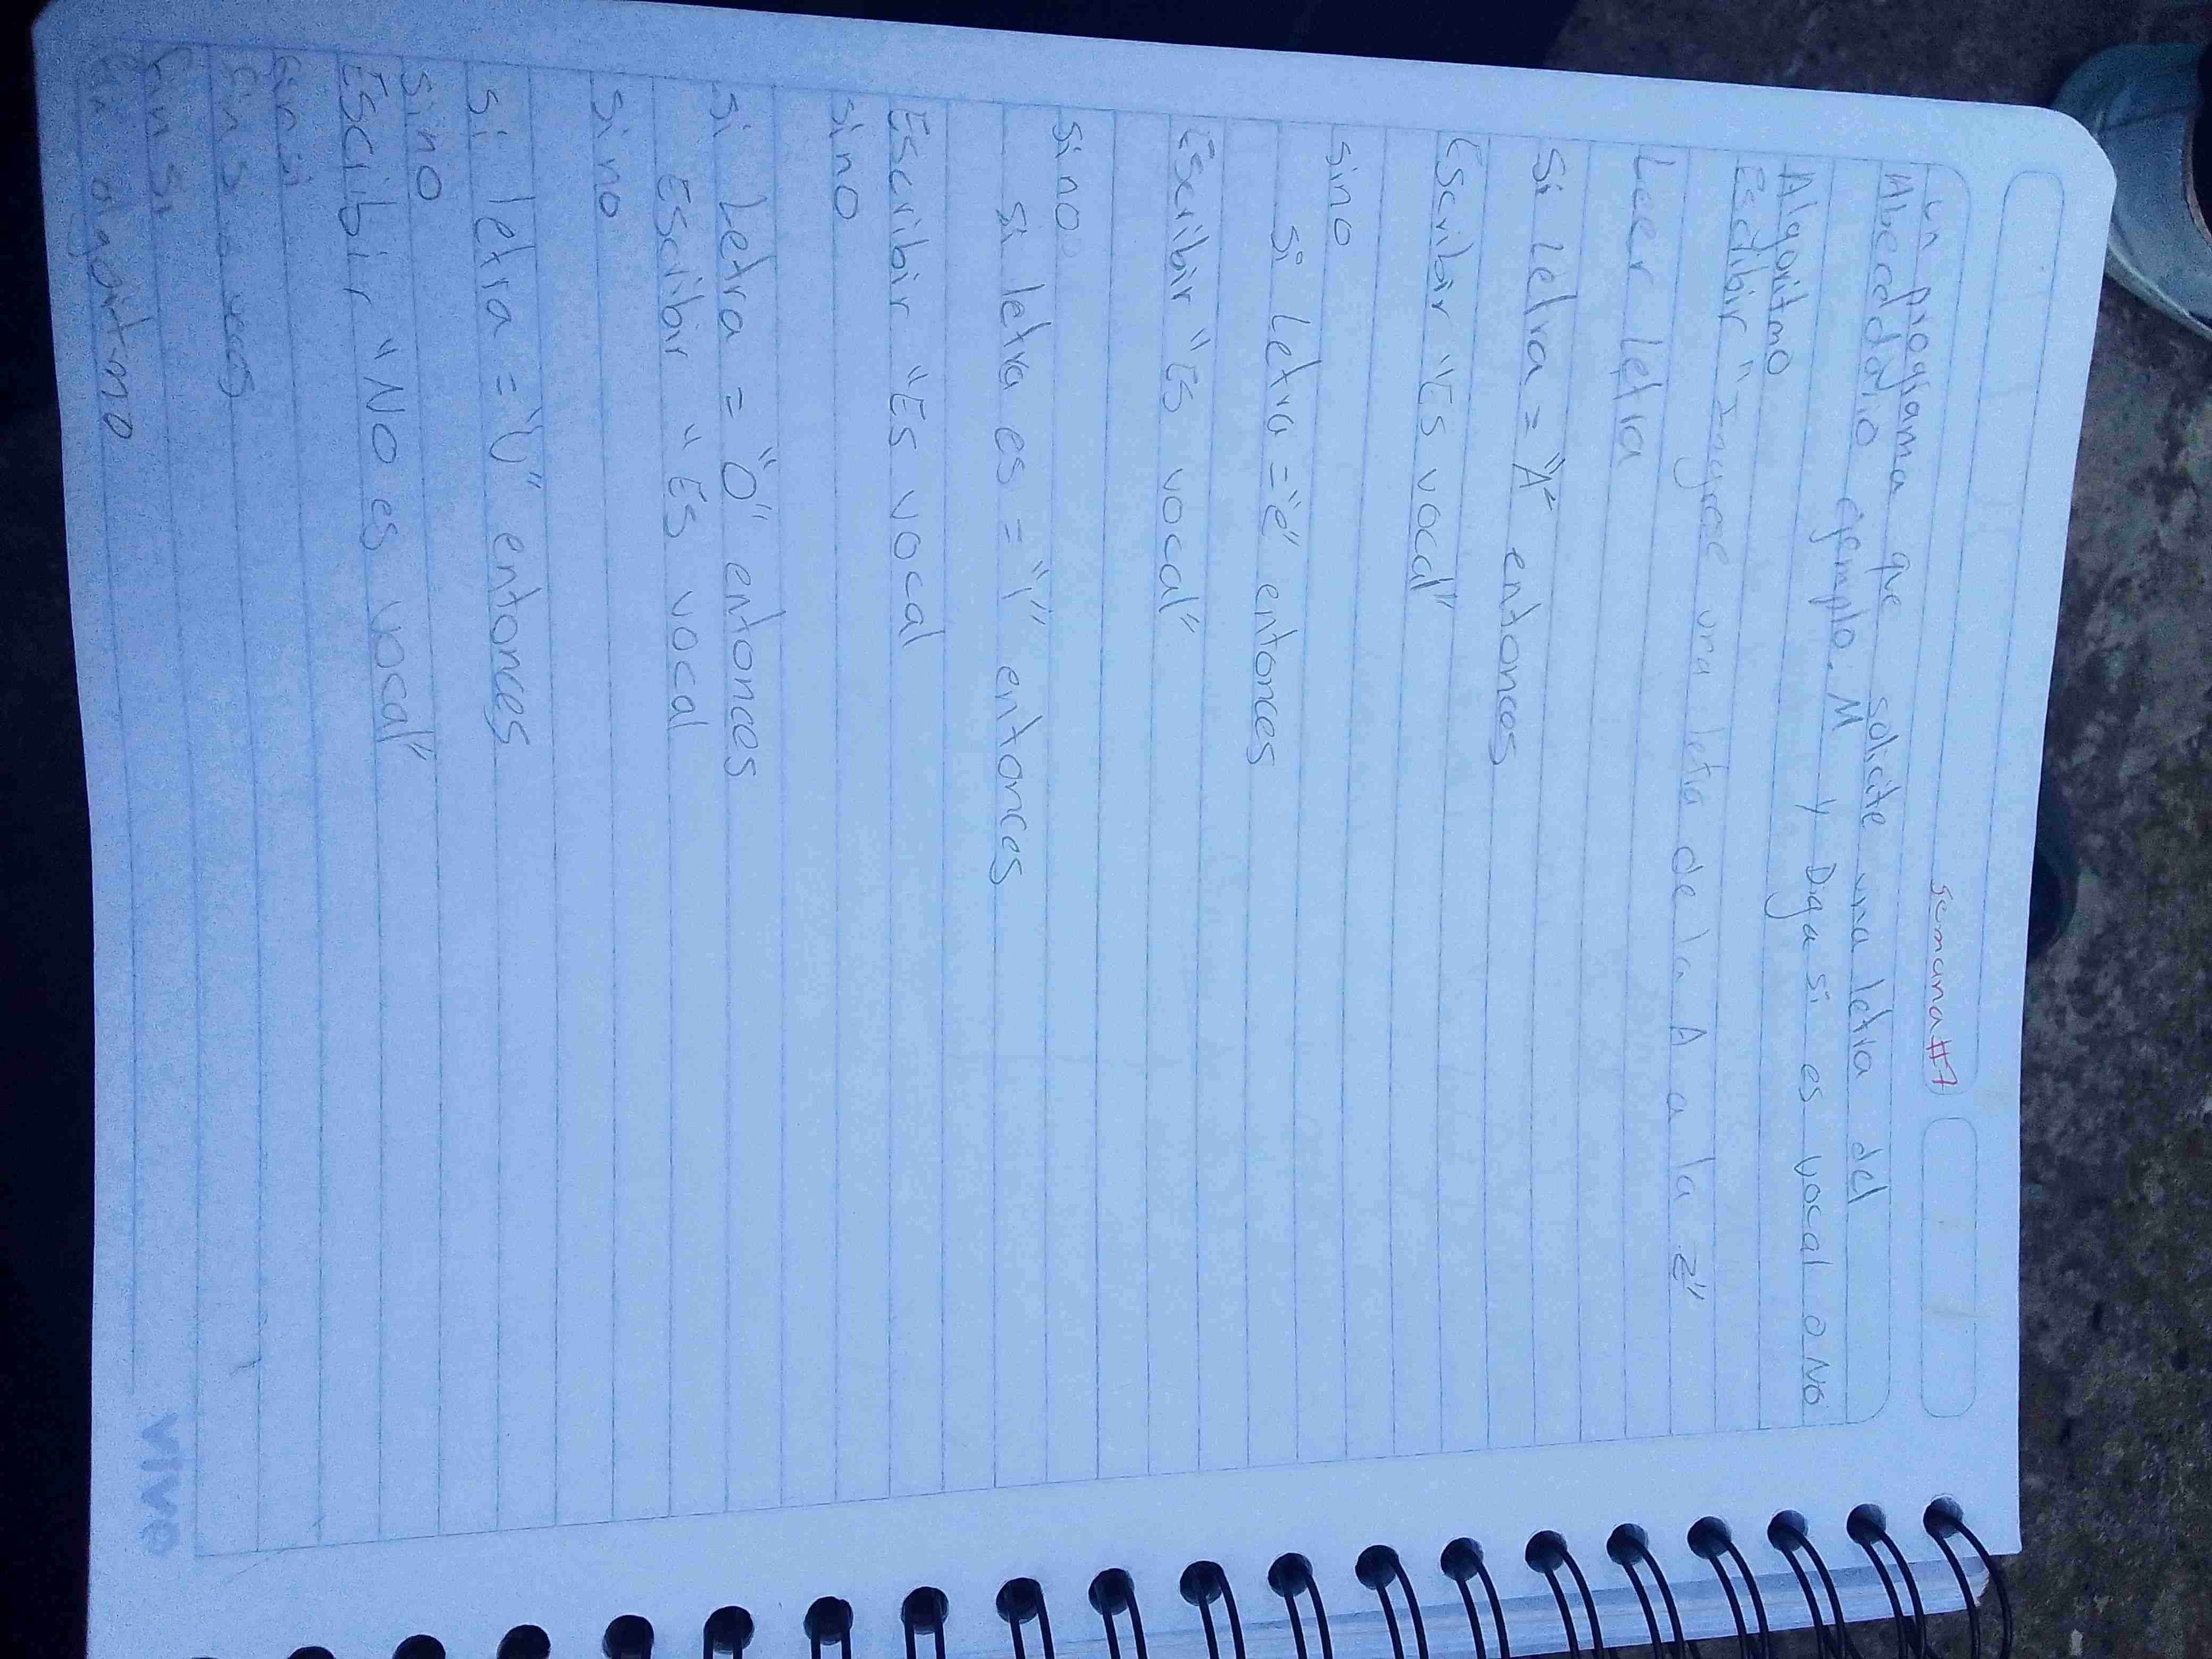 Semana #7
un programa que solicite una letra del
Abecedario ejemplo. M y Diga si es vocal o No
Algoritmo
Escribir "Ingrese una letra de la A a la Z"
Leer letra
Si Letra = "A" entonces
Escribir "Es vocal"
sino
si Letra = "e" entonces
Escribir "Es vocal"
sino
si letra es = "i" entonces
Escribir "Es vocal
sino
si Letra = "O" entonces
Escribir "Es vocal
sino
si letra = "U" entonces
sino
Escribir "No es vocal"
fin si
fin si
fin algoritmo
vivo